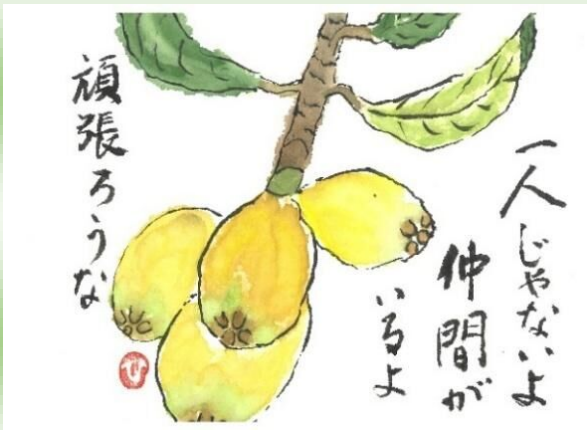 一人じゃないよ
仲間が
いるよ
頑張ろうな
ひ